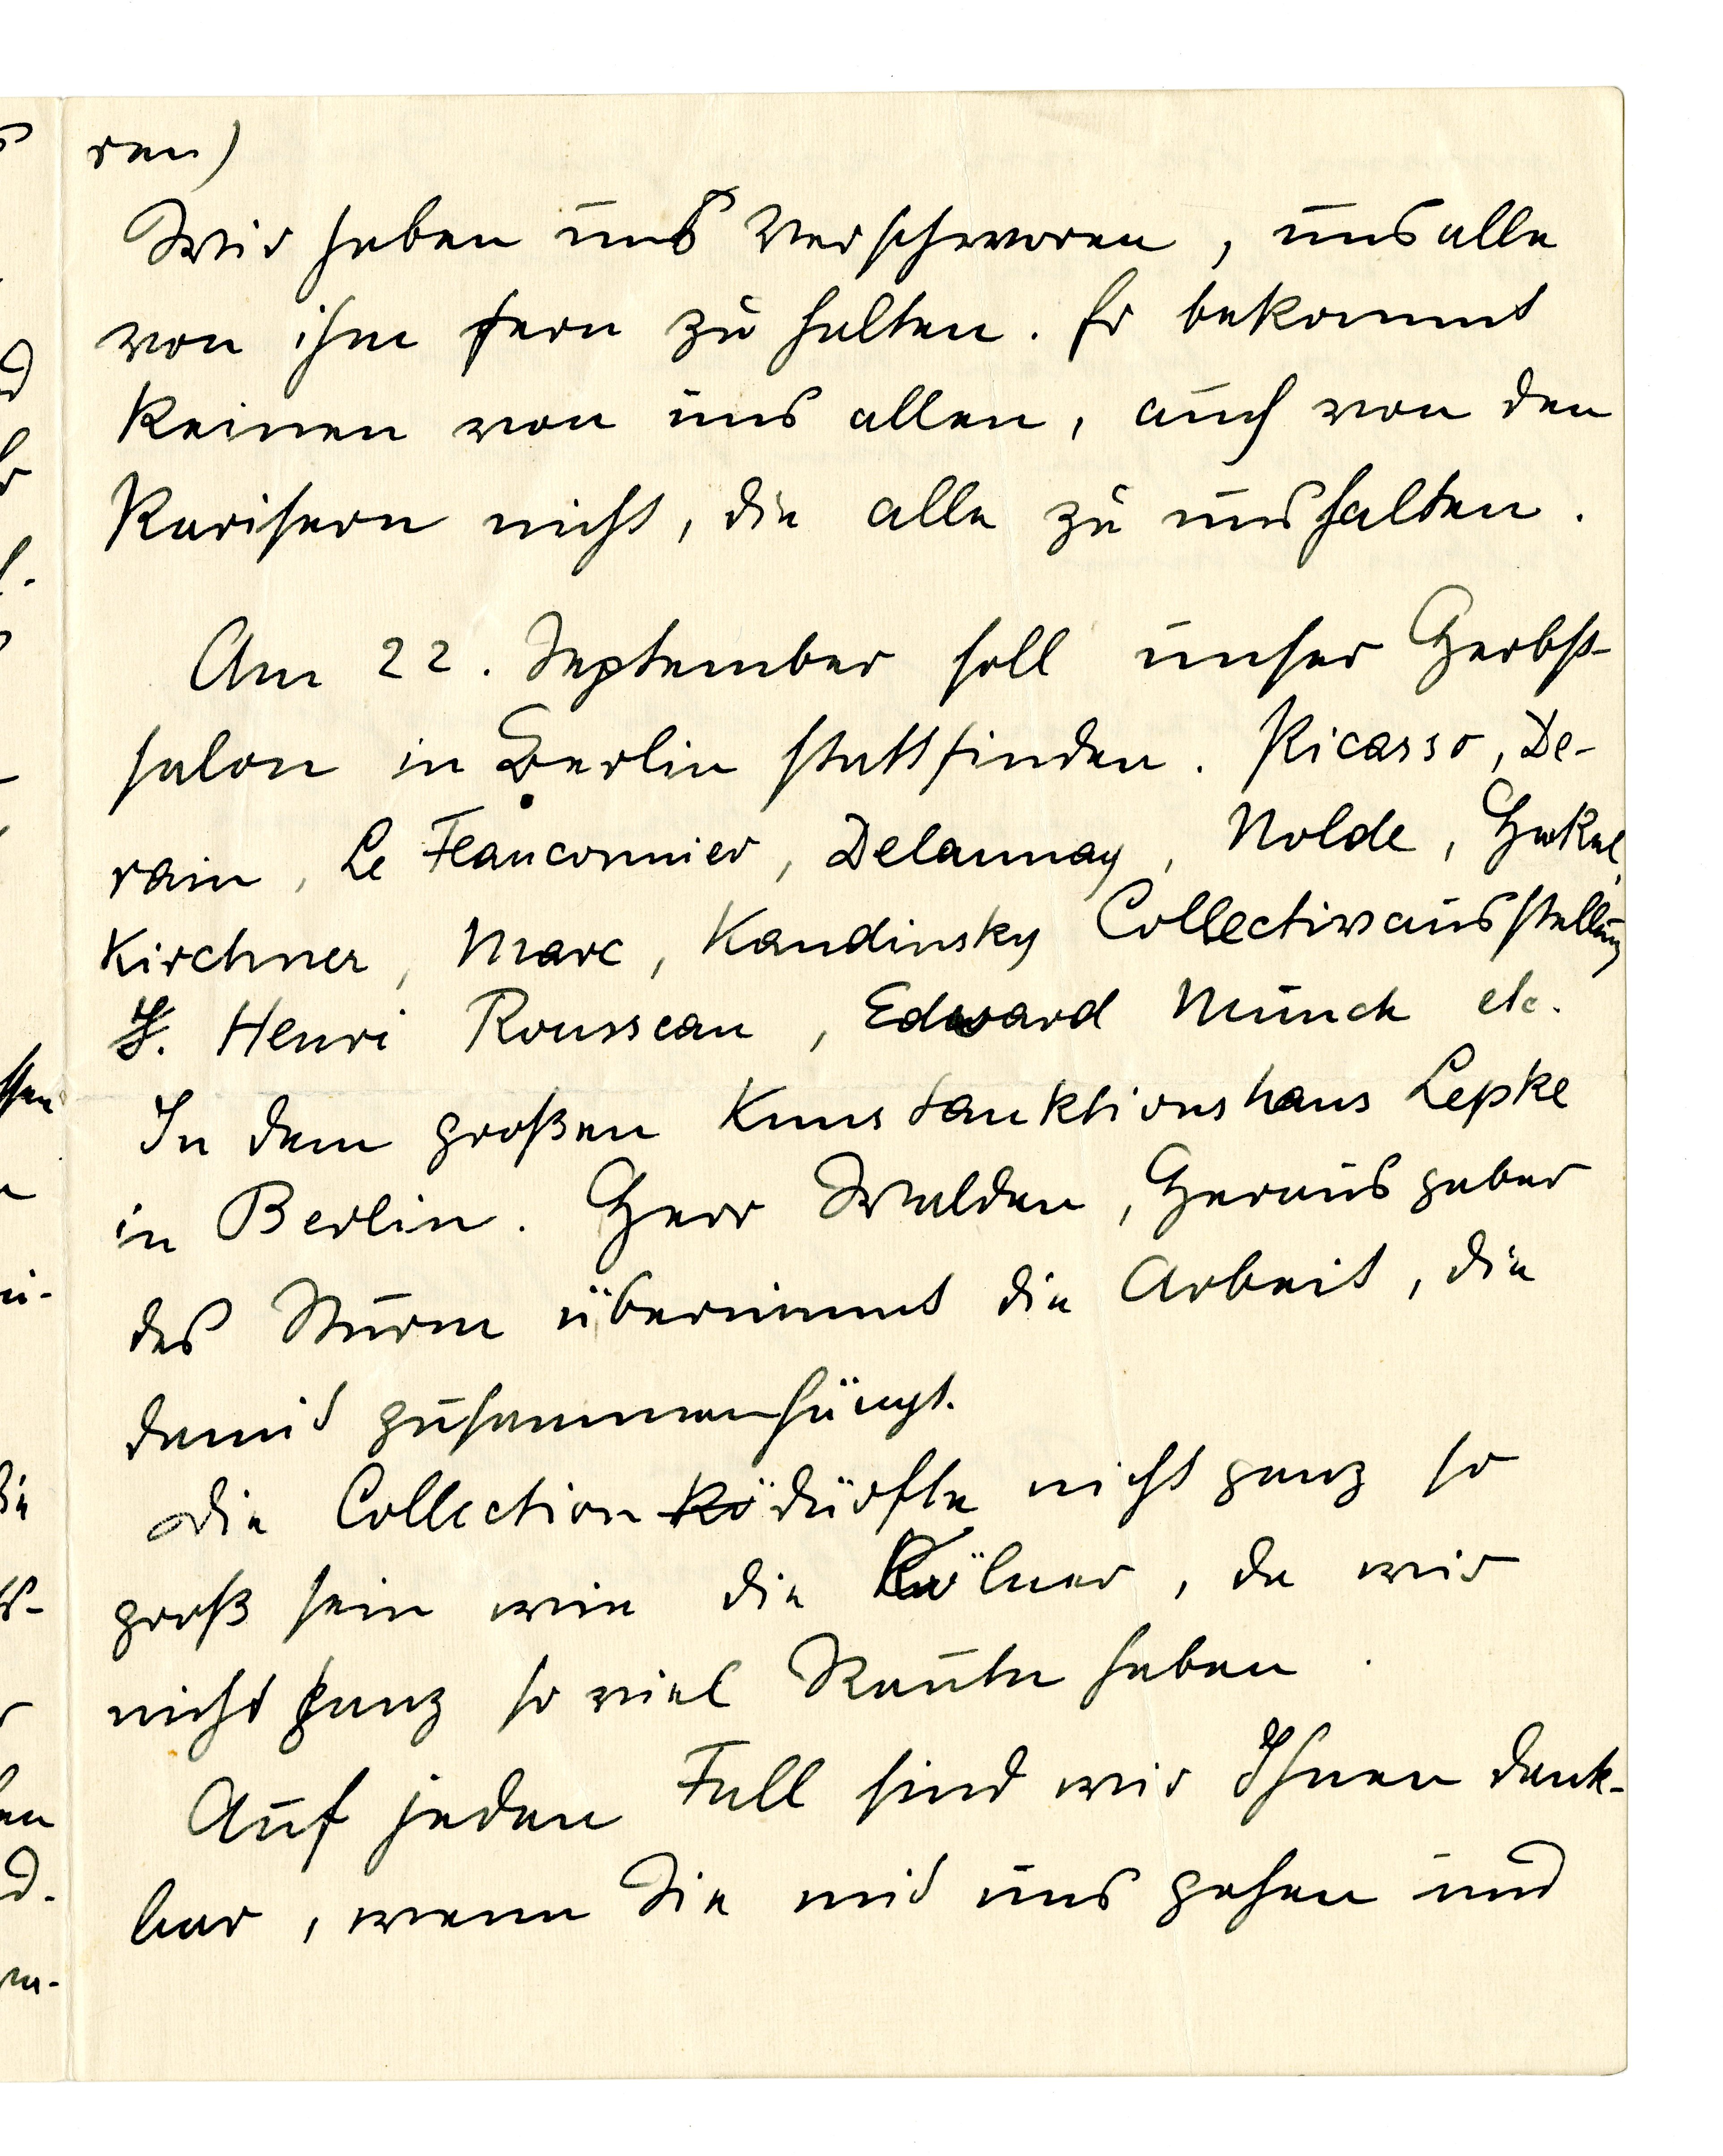 ren)
Wir haben uns verschworen, uns alle
von ihm fern zu halten. Er bekommt
Keinen von uns allen, auch von den
Parisern nicht, die alle zu uns halten.
Am 22. September soll unser Herbst-
salon in Berlin stattfinden. Picasso, De-
rain, Le Feauconnier, Delaunay, Nolde, Hekel,
Kirchner, Marc, Kandinsky Collectivausstellung
J. Henri Rousseau, Edward Munch etc.
In dem großen Kunstauktionshaus Lepke
in Berlin. Herr Walden, Herausgeber
des Sturm übernimmt die Arbeit, die
damit zusammenhängt.
Die Collection Kö dürfte nicht ganz so
groß sein wie die Kölner, da wir
nicht ganz so viel Räume haben.
Auf jeden Fall sind wir Ihnen dank-
bar, wenn Sie mit uns gehen und